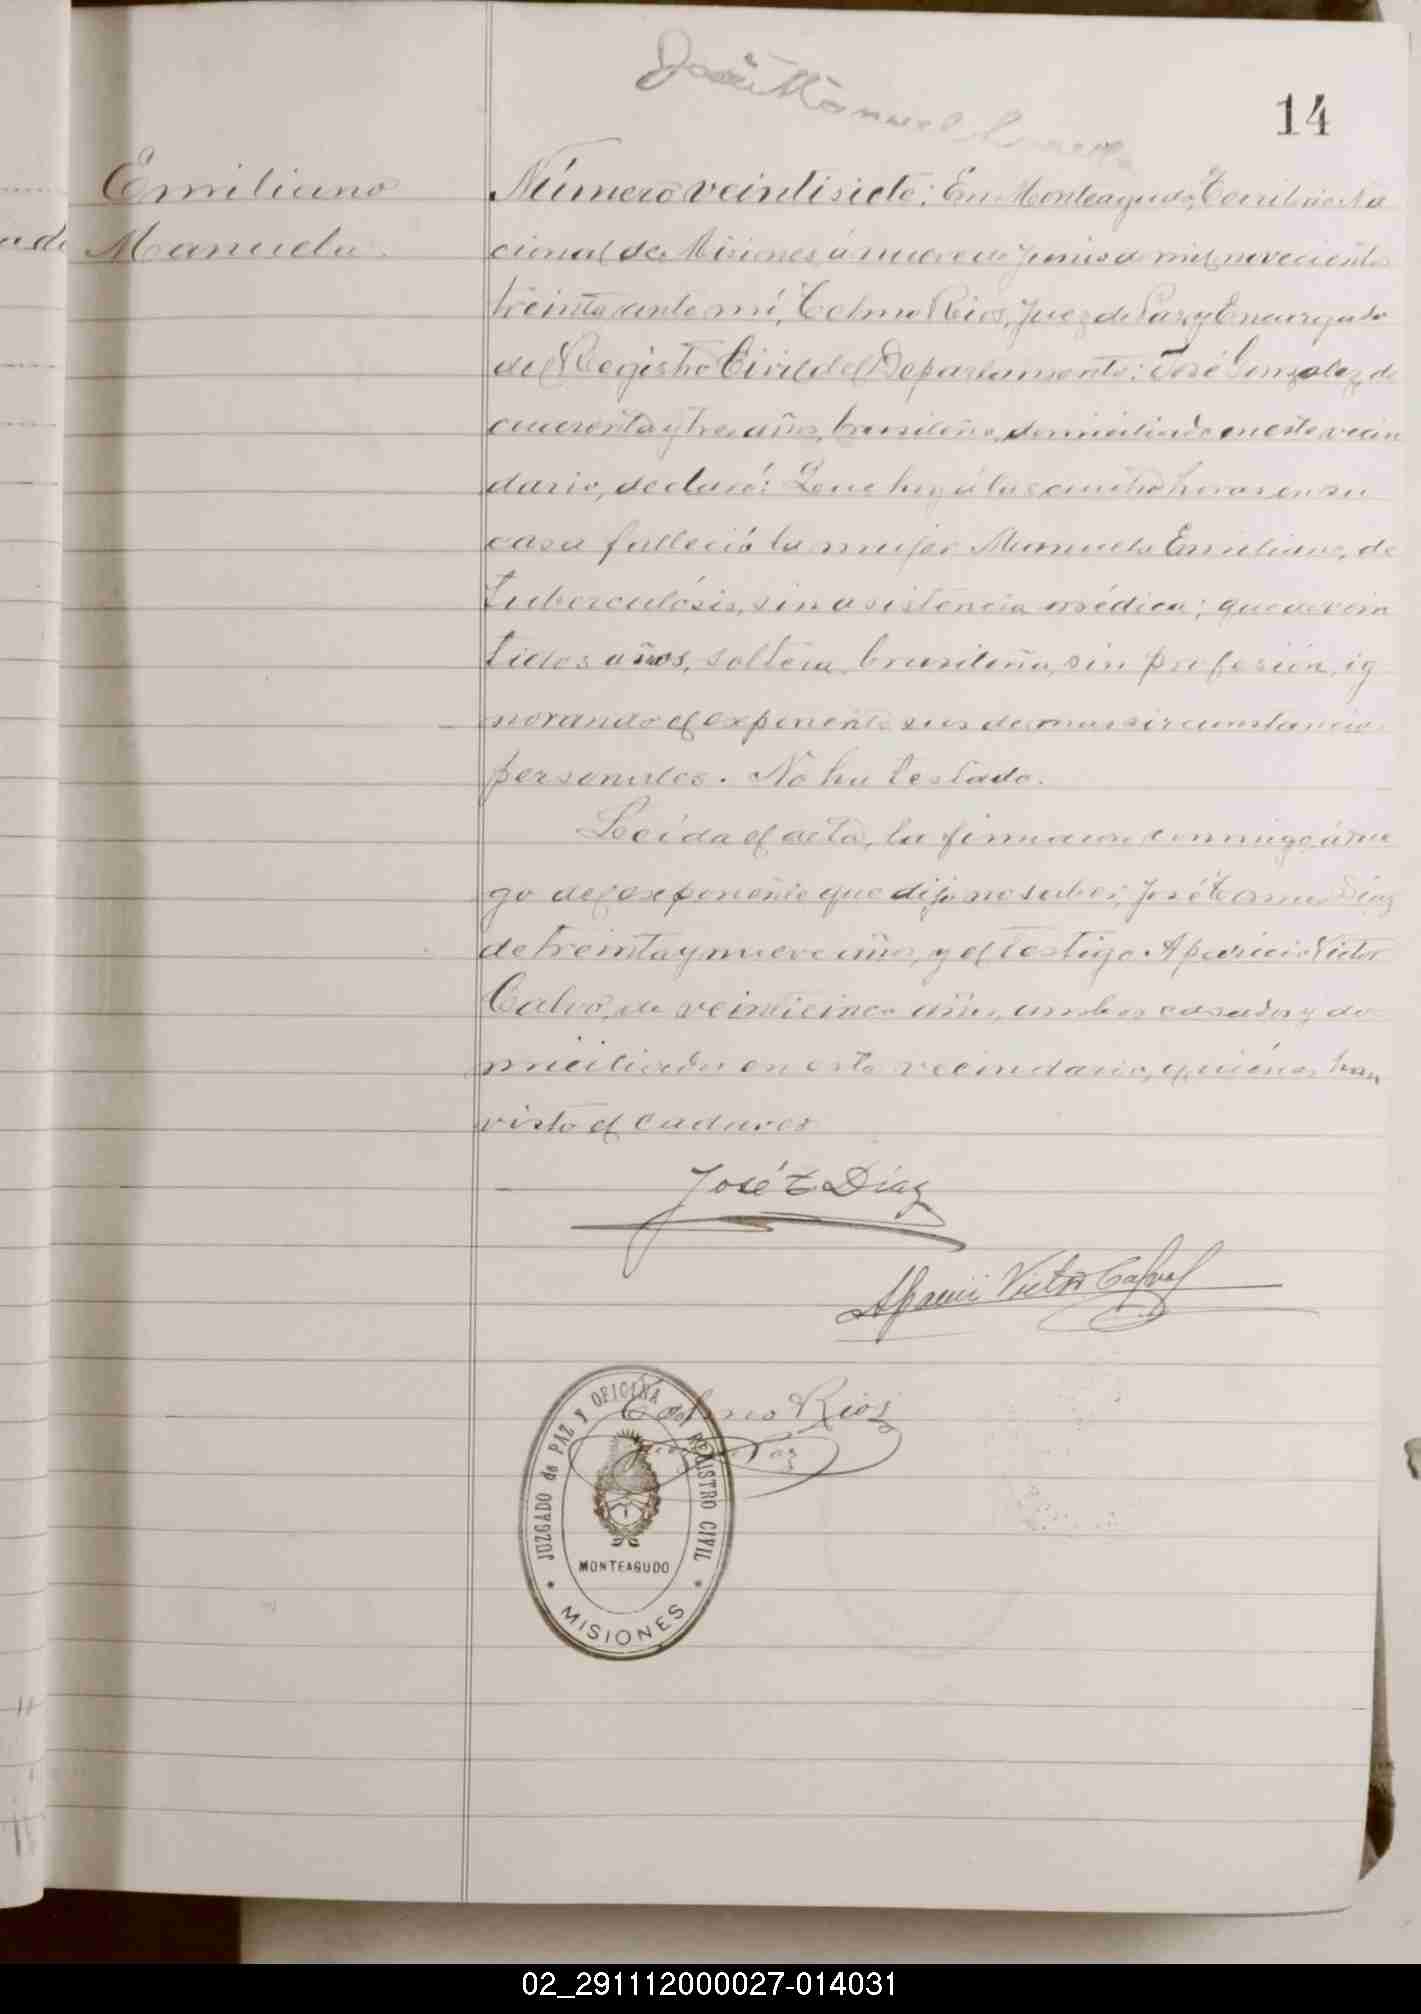 José Manuel
14
Emiliano
Manuela.
Número veintisiete: En Monteagudo, Territorio Na
cional de Misiones á nueve de Junio de mil novecientos
treinta ante mí, Telmo Rios, Juez de Paz y Encargado
del Registro Civil del Departamento: José Gonzalez, de
cuarenta y tres años, brasileño, domiciliado en este vecin
dario, declaró: Que hoy á las cuatro horas en su
casa falleció la mujer Manuela Emiliano, de
tuberculósis, sin asistencia médica; que era de vein
tidos años, soltera, brasileña, sin profesión, ig
norando el exponente sus demas circunstancias
personales. No ha testado.
Leída el acta, la firmaron conmigo á rue
go del exponente que dijo no saber, José Tomas Diaz
de treinta y nueve años, y el testigo Aparicio Victor
Calvo, de veinticinco años, ambos casados y do
miciliados en este vecindario, quiénes han
visto el cadaver
José T Diaz
Aparicio Victor Calvo
Telmo Rios
Juez de Paz
JUZGADO de PAZ y OFICINA del REGISTRO CIVIL
MONTEAGUDO
* MISIONES *
02_291112000027-014031